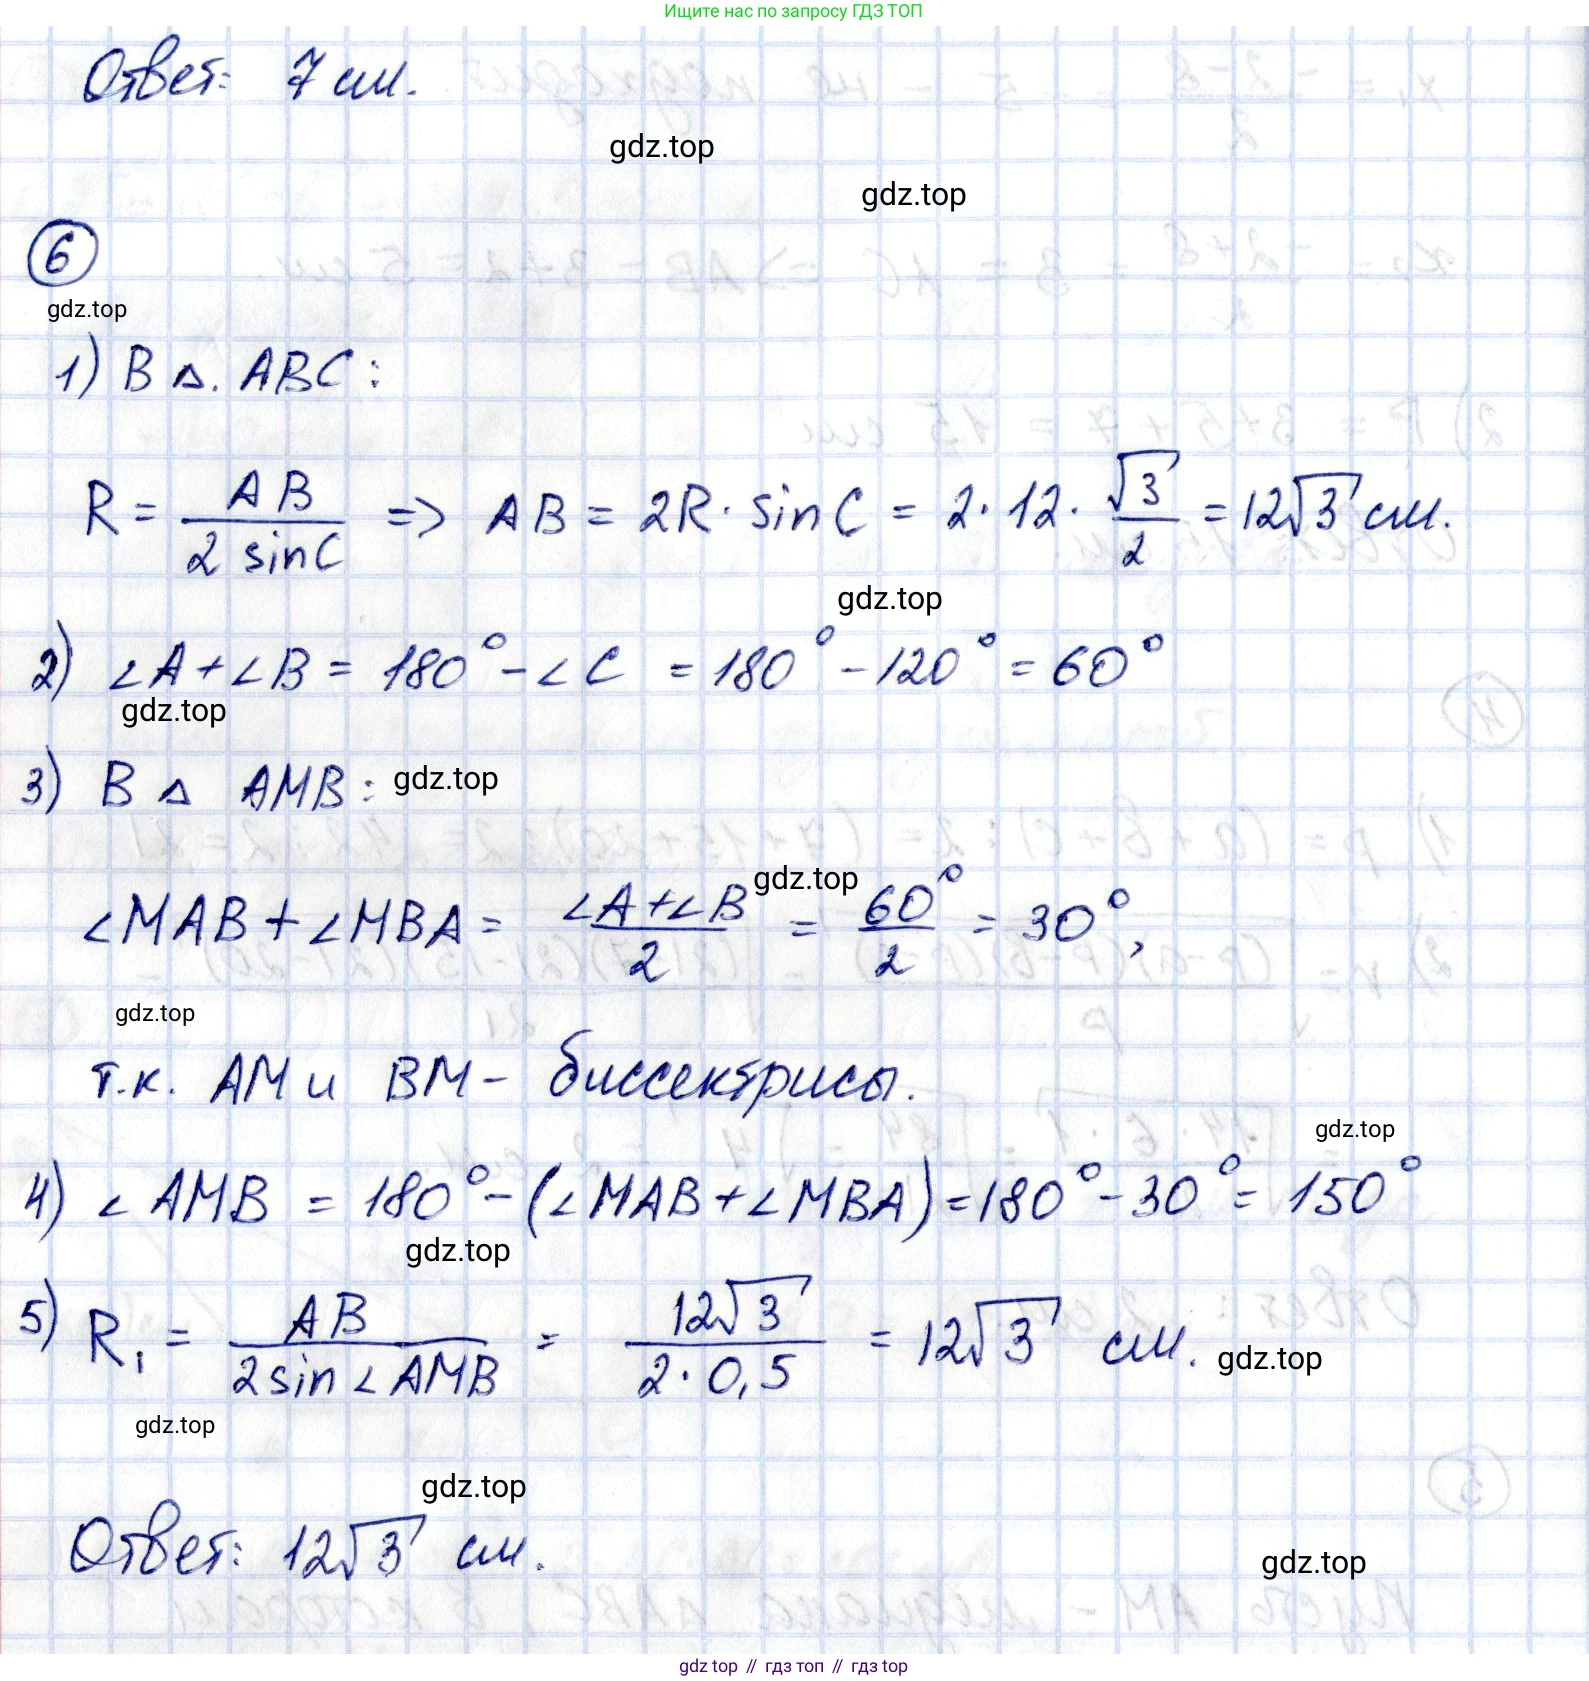 Ищите нас по запросу ГДЗ ТОП
Ответ: 7 см.
gdz.top
gdz.top
6
gdz.top
1) В △. ABC:
R = AB / 2 sinC => AB = 2R · sinC = 2 · 12 · √3 / 2 = 12√3 см.
gdz.top
2) ∠A + ∠B = 180° - ∠C = 180° - 120° = 60°
gdz.top
3) В △ AMB:
gdz.top
gdz.top
∠MAB + ∠MBA = ∠A + ∠B / 2 = 60° / 2 = 30°,
gdz.top
т.к. AM и BM - биссектрисы.
gdz.top
4) ∠ AMB = 180° - (∠MAB + ∠MBA) = 180° - 30° = 150°
gdz.top
5) R₁ = AB / 2 sin ∠ AMB = 12√3 / 2 · 0,5 = 12√3 см.
gdz.top
gdz.top
gdz.top
Ответ: 12√3 см.
gdz.top
gdz top // гдз топ // gdz top